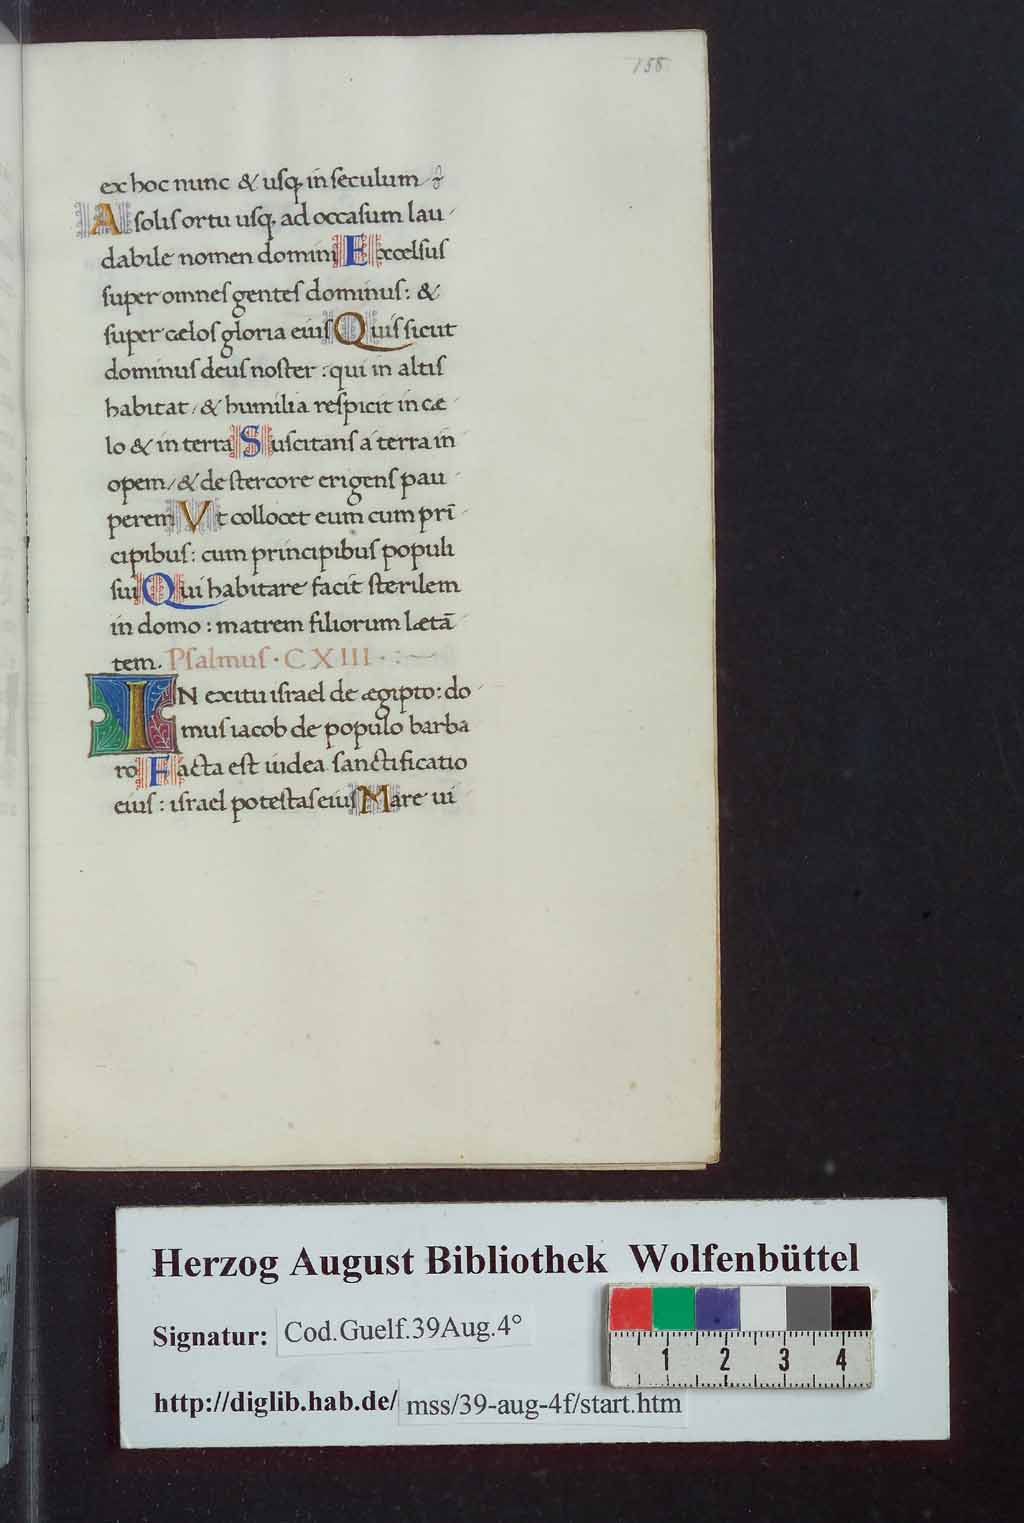 158
ex hoc nunc & usq; in seculum
A solis ortu usq; ad occasum lau
dabile nomen domini Excelsus
super omnes gentes dominus: &
super cælos gloria eius Quis sicut
dominus deus noster: qui in altis
habitat, & humilia respicit in cæ
lo & in terra Suscitans a terra in
opem, & de stercore erigens pau
perem Vt collocet eum cum prī
cipibus: cum principibus populi
sui Qui habitare facit sterilem
in domo: matrem filiorum lætā
tem. Psalmus · CXIII ·
IN exitu israel de ægipto: do
mus iacob de populo barba
ro Facta est iudea sanctificatio
eius: israel potestas eius Mare ui
Herzog August Bibliothek Wolfenbüttel
Signatur: Cod.Guelf.39Aug.4°
1 2 3 4
http://diglib.hab.de/ mss/39-aug-4f/start.htm